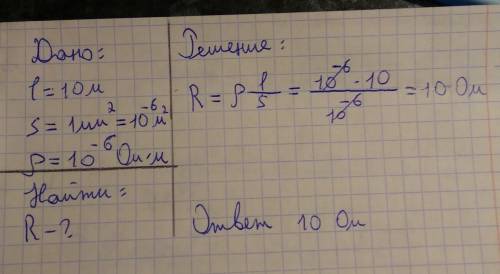 Дано:
l = 10 м
S = 1 мм² = 10⁻⁶ м²
ρ = 10⁻⁶ Ом·м
Найти:
R - ?
Решение:
R = ρ l/S = 10⁻⁶ · 10 / 10⁻⁶ = 10 Ом
Ответ 10 Ом